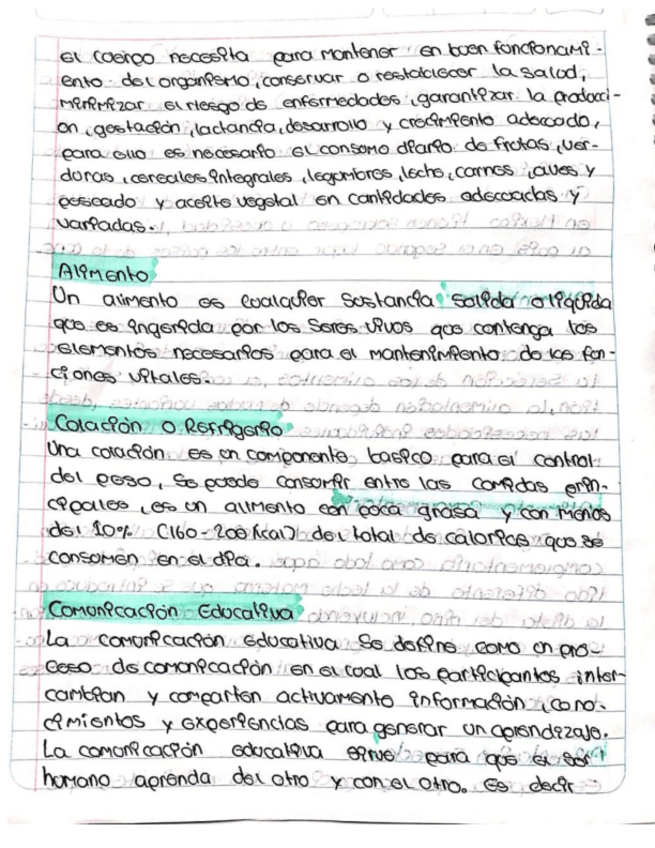 el cuerpo necesita para mantener en buen funcionami-
ento del organismo, conservar o restablecer la salud,
minimizar el riesgo de enfermedades, garantizar la producci-
on, gestación, lactancia, desarrollo y crecimiento adecuado,
para ello es necesario el consumo diario de frutas, ver-
duras, cereales integrales, legumbres, leche, carnes, aves y
pescado y aceite vegetal en cantidades adecuadas y
variadas.
Alimento
Un alimento es cualquier sustancia solida o liquida
que es ingerida por los seres vivos que contenga los
elementos necesarios para el mantenimiento de las fun-
ciones vitales.
Colación o Refrigerio
Una colación es un componente basico para el control
del peso, se puede consumir entre las comidas prin-
cipales, es un alimento con poca grasa y con menos
del 10% (160-200 kcal) del total de calorias que se
consumen en el dia.
Comunicación Educativa
La comunicación educativa se define como un pro-
ceso de comunicación en el cual los participantes inter-
cambian y comparten activamente información, cono-
cimientos y experiencias para generar un aprendizaje.
La comunicación educativa sirve para que el ser
humano aprenda del otro y con el otro. Es decir